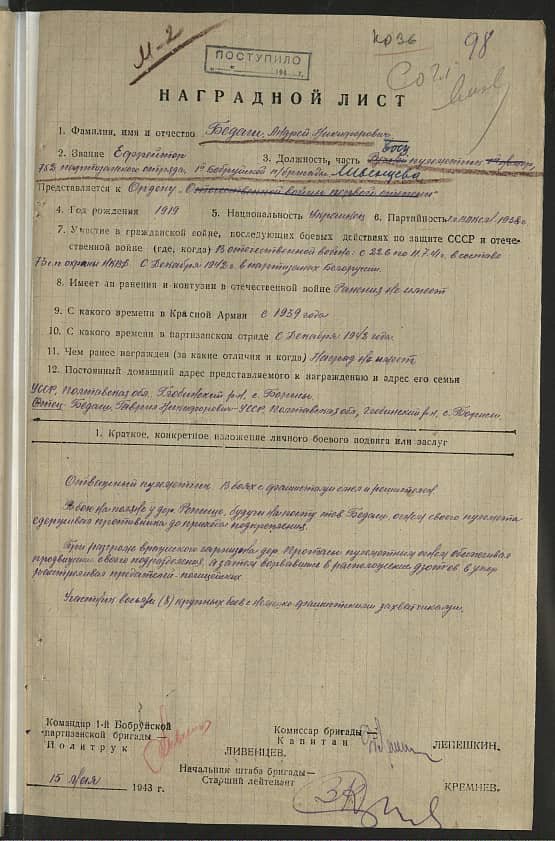 М-2
КОЗБ
98
ПОСТУПИЛО
194 г.
НАГРАДНОЙ ЛИСТ
1. Фамилия, имя и отчество Бедаш, Андрей Никифорович
2. Звание Ефрейтор 3. Должность, часть пулеметчик
752 партизанского отряда, 1й Бобруйской п/бригады Ливенцева
Представляется к Ордену Отечественной войны первой степени
4. Год рождения 1919 5. Национальность Украинец 6. Партийность
7. Участие в гражданской войне, последующих боевых действиях по защите СССР и отече-
ственной войне (где, когда) В отечественной войне с 22.6 по 11.7.41г. в составе
73 п. охраны НКВД. С Декабря 1942 г. в партизанах Белоруссии.
8. Имеет ли ранения и контузии в отечественной войне Ранения не имеет
9. С какого времени в Красной Армии с 1939 года
10. С какого времени в партизанском отряде С Декабря 1942 года
11. Чем ранее награжден (за какие отличия и когда) Наград не имеет
12. Постоянный домашний адрес представляемого к награждению и адрес его семьи
УССР, Полтавская обл. р-н, с.
Отец: Бедаш, Никифорович – УССР, Полтавская обл, р-н, с.
1. Краткое, конкретное изложение личного боевого подвига или заслуг
Отважный пулеметчик. В боях с фашистами смел и решителен.
В бою на поляне у дер. будучи на посту тов Бедаш, огнем своего пулемета
сдерживал противника до принятия подкрепления.
При разгроме вражеского гарнизона дер. Протасы пулеметным огнем обеспечивал
продвижение своего подразделения, а затем ворвавшись в расположение дзотов в упор
расстреливал предателей-полицейских.
Участник восьми (8) крупных боев с немецко-фашистскими захватчиками.
Командир 1-й Бобруйской
партизанской бригады —
Политрук
ЛИВЕНЦЕВ.
Комиссар бригады—
Капитан
ЛЕПЕШКИН.
Начальник штаба бригады—
Старший лейтенант
КРЕМНЕВ.
15 мая 1943 г.